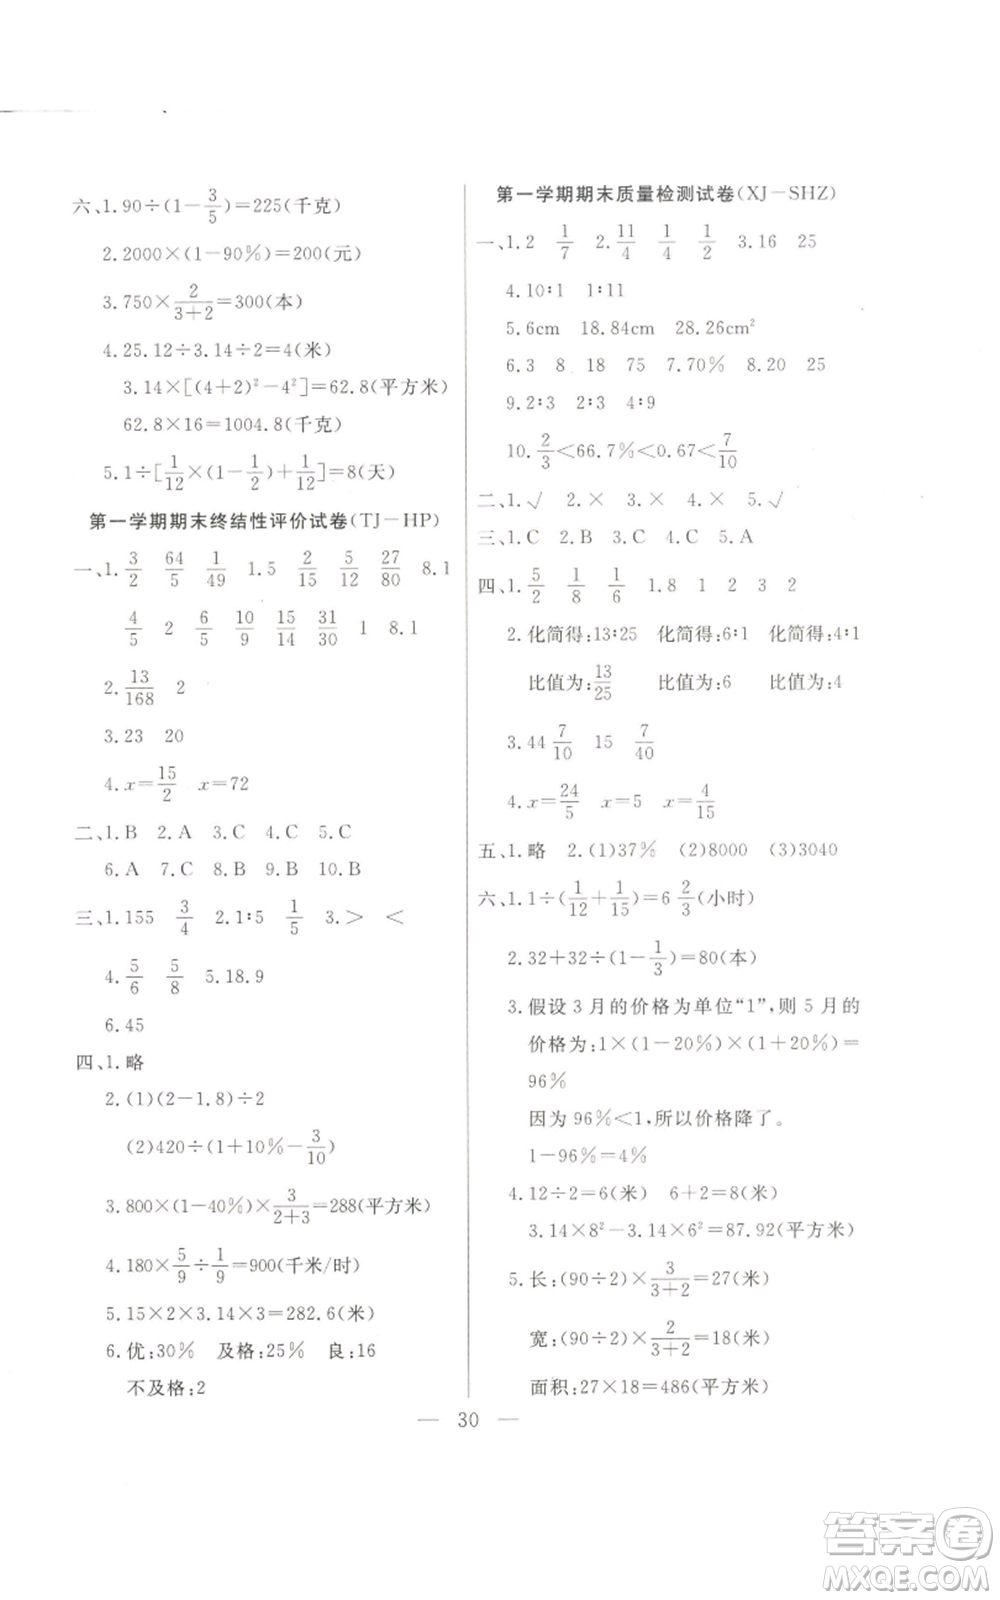 六、1.90÷(1－3/5)=225(千克)
2.2000×(1－90%)=200(元)
3.750×2/(3+2)=300(本)
4.25.12÷3.14÷2=4(米)
3.14×[(4+2)²－4²]=62.8(平方米)
62.8×16=1004.8(千克)
5.1÷[1/12×(1－1/2)+1/12]=8(天)
第一学期期末终结性评价试卷(TJ－HP)
一、1. 3/2 64/5 1/49 1.5 2/15 5/12 27/80 8.1
4/5 2 6/5 10/9 15/14 31/30 1 8.1
2. 13/168 2
3.23 20
4.x=15/2 x=72
二、1.B 2.A 3.C 4.C 5.C
6.A 7.C 8.B 9.C 10.B
三、1.155 3/4 2.1∶5 1/5 3.＞ ＜
4. 5/6 5/8 5.18.9
6.45
四、1.略
2.(1)(2－1.8)÷2
(2)420÷(1+10%－3/10)
3.800×(1－40%)×3/(2+3)=288(平方米)
4.180×5/9÷1/9=900(千米/时)
5.15×2×3.14×3=282.6(米)
6.优:30% 及格:25% 良:16
不及格:2
第一学期期末质量检测试卷(XJ－SHZ)
一、1.2 1/7 2. 11/4 1/4 1/2 3.16 25
4.10∶1 1∶11
5.6cm 18.84cm 28.26cm²
6.3 8 18 75 7.70% 8.20 25
9.2∶3 2∶3 4∶9
10. 2/3＜66.7%＜0.67＜7/10
二、1.√ 2.× 3.× 4.× 5.√
三、1.C 2.B 3.C 4.C 5.A
四、1. 5/2 1/8 1/6 1.8 1 2 3 2
2.化简得:13∶25 化简得:6∶1 化简得:4∶1
比值为:13/25 比值为:6 比值为:4
3.44 7/10 15 7/40
4.x=24/5 x=5 x=4/15
五、1.略 2.(1)37% (2)8000 (3)3040
六、1.1÷(1/12+1/15)=6 2/3(小时)
2.32+32÷(1－1/3)=80(本)
3.假设3月的价格为单位“1”,则5月的
价格为:1×(1－20%)×(1+20%)=
96%
因为96%＜1,所以价格降了。
1－96%=4%
4.12÷2=6(米) 6+2=8(米)
3.14×8²－3.14×6²=87.92(平方米)
5.长:(90÷2)×3/(3+2)=27(米)
宽:(90÷2)×2/(3+2)=18(米)
面积:27×18=486(平方米)
— 30 —
答案圈
MXQE.COM